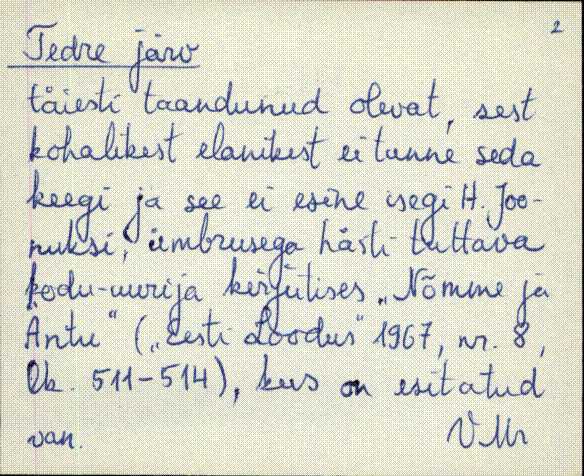 2
Tedre järv
täiesti taandunud olevat, sest
kohalikest elanikest ei tunne seda
keegi ja see ei esine isegi H. Joo-
nuksi, ümbrusega hästi tuttava
kodu-uurija kirjutises „Nõmme ja
Äntu" („Eesti Loodus" 1967, nr. 8,
lk. 511-514), kus on esitatud
van. VMr